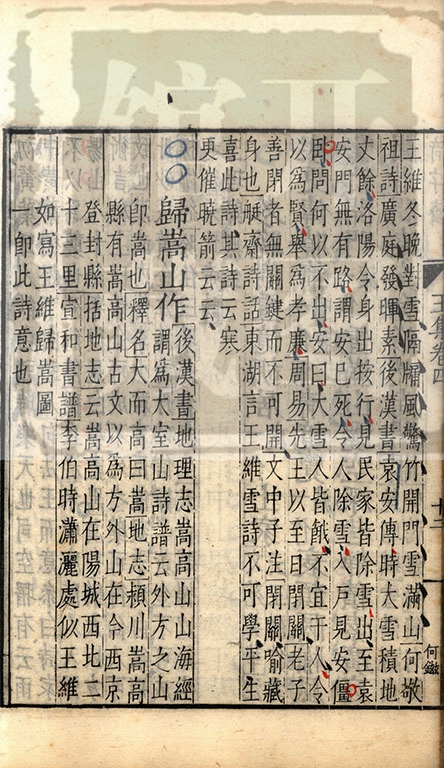 王維冬晚對雪隔牖風驚竹開門雪滿山何敬
祖詩廣庭發暉素後漢書袁安傳時大雪積地
丈餘洛陽令身出按行見民家皆除雪出至袁
安門無有路謂安已死令人除雪入戶見安僵
臥問何以不出安曰大雪人皆餓不宜干人令
以為賢舉為孝廉周易先王以至日閉關老子
善閉者無關鍵而不可開文中子注閉關喻藏
身也艇齋詩話東湖言王維雪詩不可學平生
喜此詩其詩云寒
更催曉箭云云
歸嵩山作後漢書地理志嵩高山山海經
謂為太室山詩譜云外方之山
卽嵩也釋名大而高曰嵩地志潁川嵩高
縣有嵩高山古文以為方外山在今西京
登封縣括地志云嵩高山在陽城西北二
十三里宣和書譜李伯時瀟灑處似王維
如寫王維歸嵩圖
卽此詩意也
何鎡